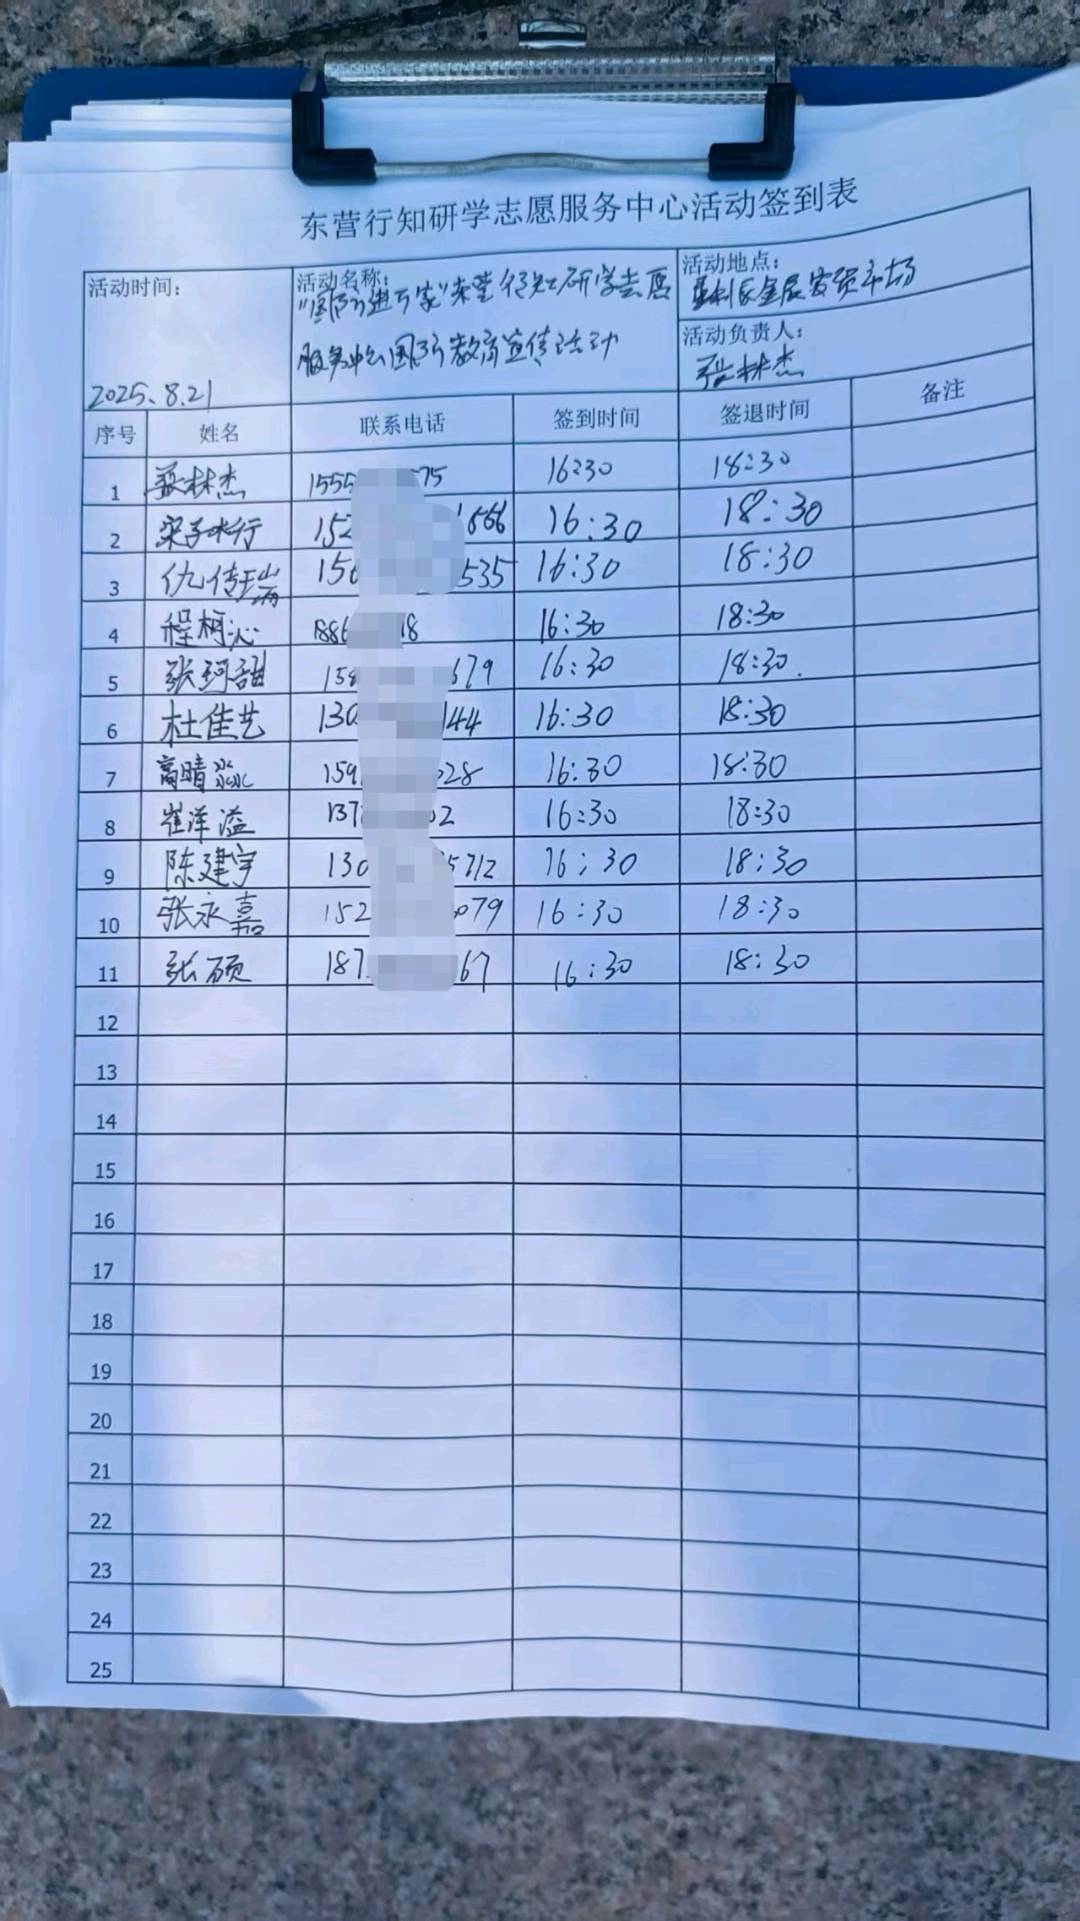 东营行知研学志愿服务中心活动签到表
活动时间：
2025.8.21
活动名称：
"国防进万家"东营行知研学志愿
服务中心国防教育宣传活动
活动地点：
垦利区金辰农贸市场
活动负责人：
张林杰
序号 姓名 联系电话 签到时间 签退时间 备注
1 林杰 1555 75 16:30 18:30
2 梁子 152 1666 16:30 18:30
3 仇传瑞 156 535 16:30 18:30
4 程柯沁 1886 18 16:30 18:30
5 张珂甜 158 679 16:30 18:30.
6 杜佳艺 130 144 16:30 18:30
7 高晴淼 159 028 16:30 18:30
8 崔洋溢 137 02 16:30 18:30
9 陈建宇 130 5712 16:30 18:30
10 张永嘉 152 079 16:30 18:30
11 张硕 187 67 16:30 18:30
12
13
14
15
16
17
18
19
20
21
22
23
24
25